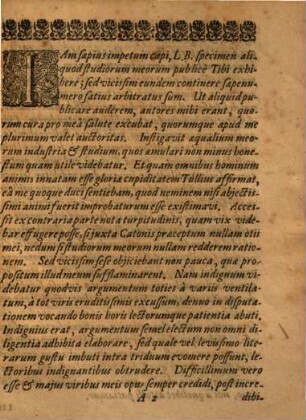 IAm sæpius impetum capi, L. B. specimen ali-
quod studiorum meorum publicè Tibi exhi-
bere; sed vicissim eundem continere sæpenu-
mero satius arbitratus sum. Ut aliquid pu-
blicare auderem, autores mihi erant, quo-
rum cura pro meâ salute excubat, quorumque apud me
plurimum valet auctoritas. Instigavit æqualium meo-
rum industria & studium, quos æmulari non minus hone-
stum quam utile videbatur. Et quam omnibus hominum
animis innatam esse gloriæ cupiditatem Tullius affirmat,
eâ me quoque duci sentiebam, quod neminem nisi abjectis-
simi animi fuerit improbaturum esse existimavi. Acces-
sit ex contraria parte nota turpitudinis, quam vix vide-
bar effugere posse, si juxta Catonis præceptum nullam otii
mei, nedum si studiorum meorum nullam redderem ratio-
nem. Sed vicissim sese objiciebant non pauca, quæ pro-
positum illud meum sufflaminarent. Nam indignum vi-
debatur quodvis argumentum toties à variis ventila-
tum, à tot viris eruditissimis excussum, denuo in disputa-
tionem vocando bonis horis lectorumque patientia abuti.
Indignius erat, argumentum semel electum non omni di-
ligentia adhibita elaborare, sed quale vel levissimo lite-
rarum gustu imbuti intra triduum evomere possunt, le-
ctoribus indignantibus obtrudere. Difficillimum vero
esse & majus viribus meis opus semper credidi, post incre-
A 2 dibi-